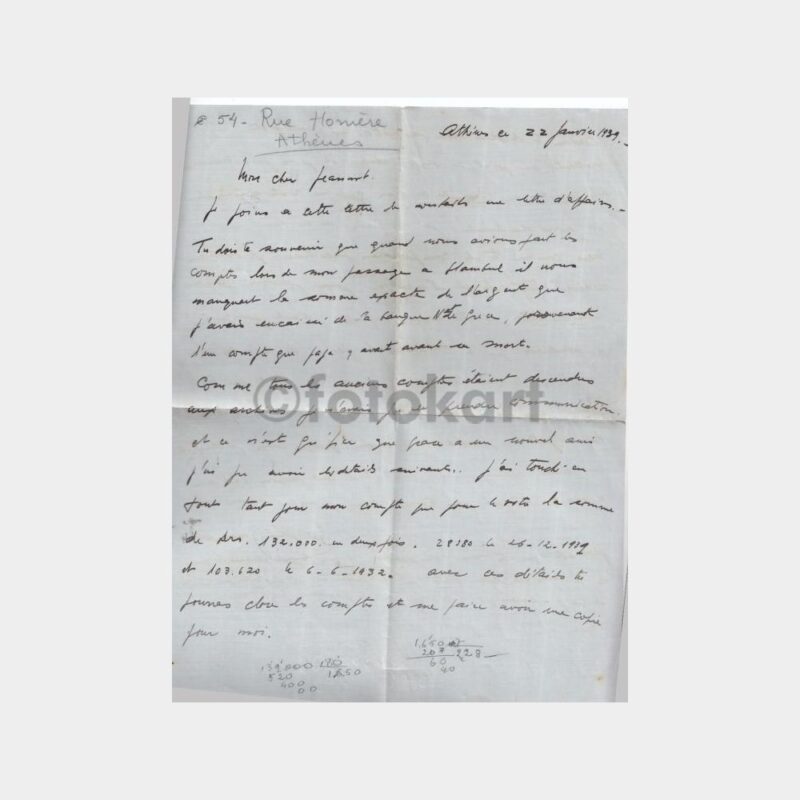 54 - Rue Homère
Athènes
Athènes ce 22 Janvier 1939.-
Mon cher Jeannot.
Je joins a cette lettre de souhaits une lettre d'affaires.-
Tu dois te souvenir que quand nous avions fait les
comptes lors de mon passage a Stambul il nous
manquait la somme exacte de l'argent que
j'avais encaissé de la Banque Nle de Grèce, provenant
d'un compte que papa y avait avant sa mort.
Comme tous les anciens comptes étaient descendus
aux archives je n'avais pu en prendre communication
et ce n'est qu'ici que grace a un nouvel ami
j'ai pu avoir les détails suivants. J'ai touché en
tout tant pour mon compte que pour le vote la somme
de Drs. 132.000 en deux fois. 28380 le 26-12-1932
et 103.620 le 6-6-1932. avec ces détails tu
pourras clore les comptes et me faire avoir une copie
pour moi.
©fotokart